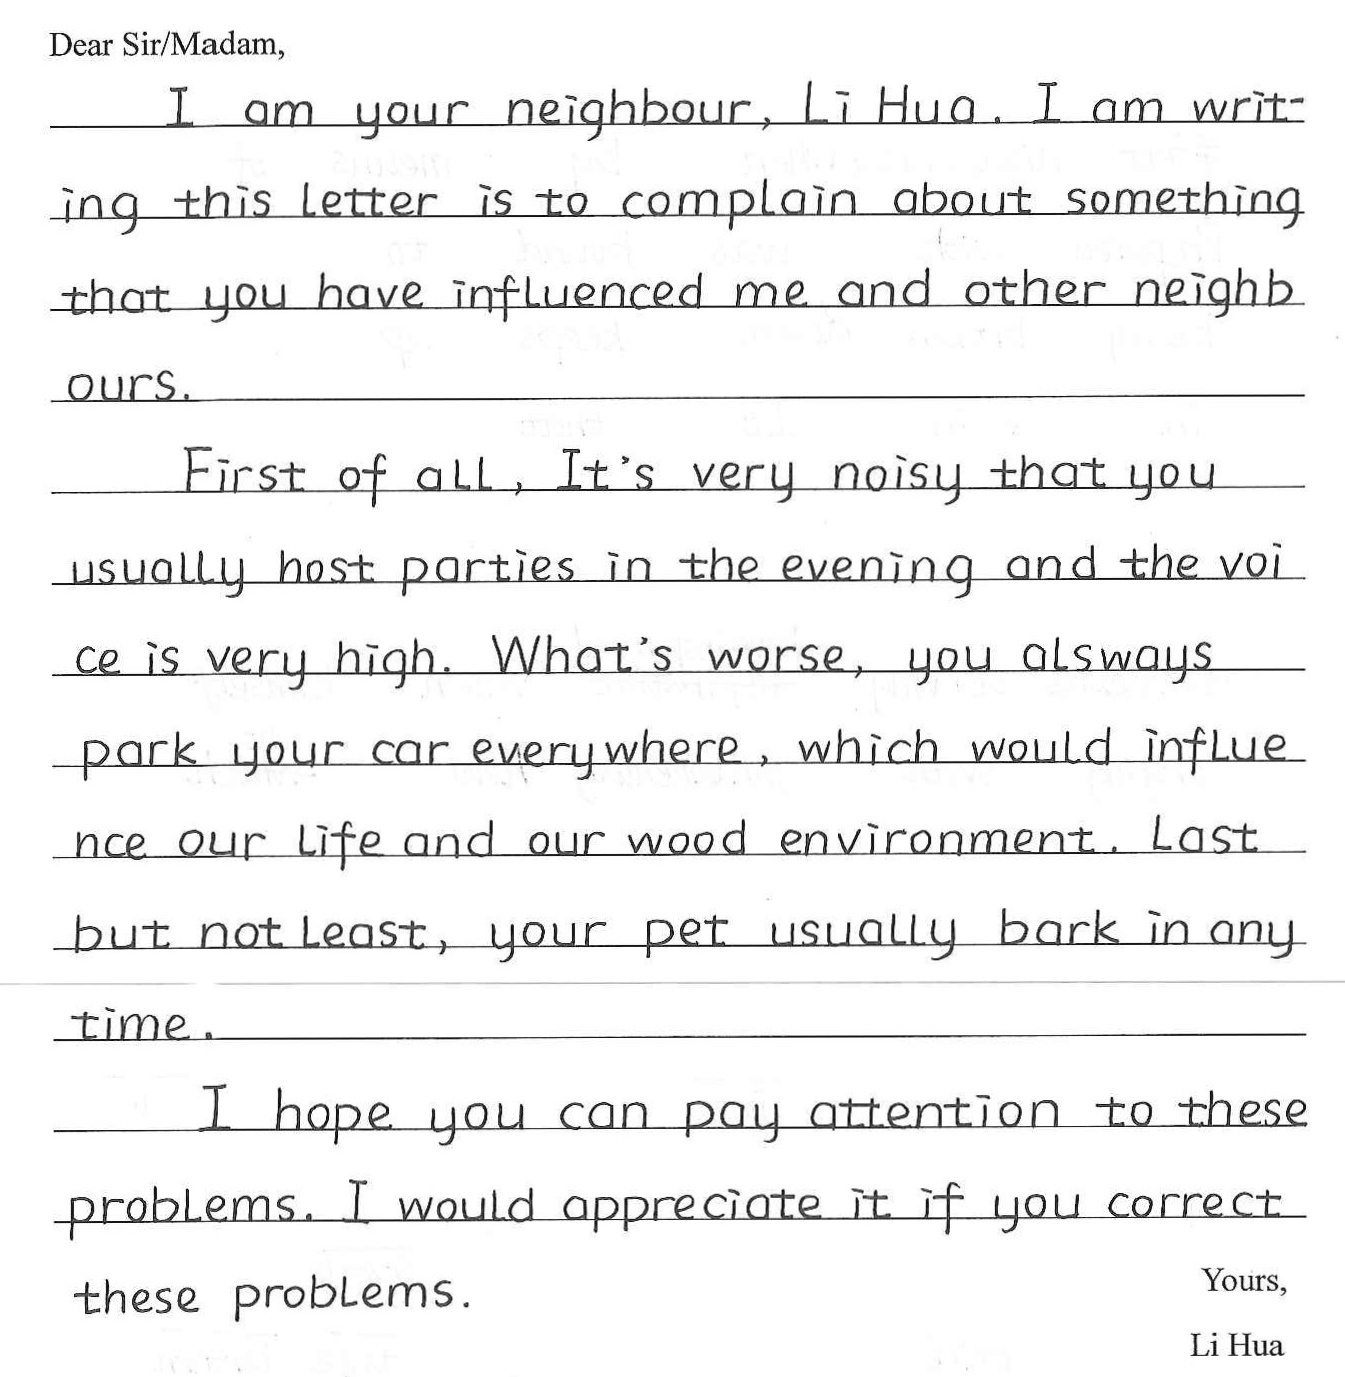 Dear Sir/Madam,
I am your neighbour, Li Hua. I am writ-
ing this letter is to complain about something
that you have influenced me and other neighb
ours.
First of all, It's very noisy that you
usually host parties in the evening and the voi
ce is very high. What's worse, you alsways
park your car everywhere, which would influe
nce our life and our wood environment. Last
but not least, your pet usually bark in any
time.
I hope you can pay attention to these
problems. I would appreciate it if you correct
these problems.
Yours,
Li Hua